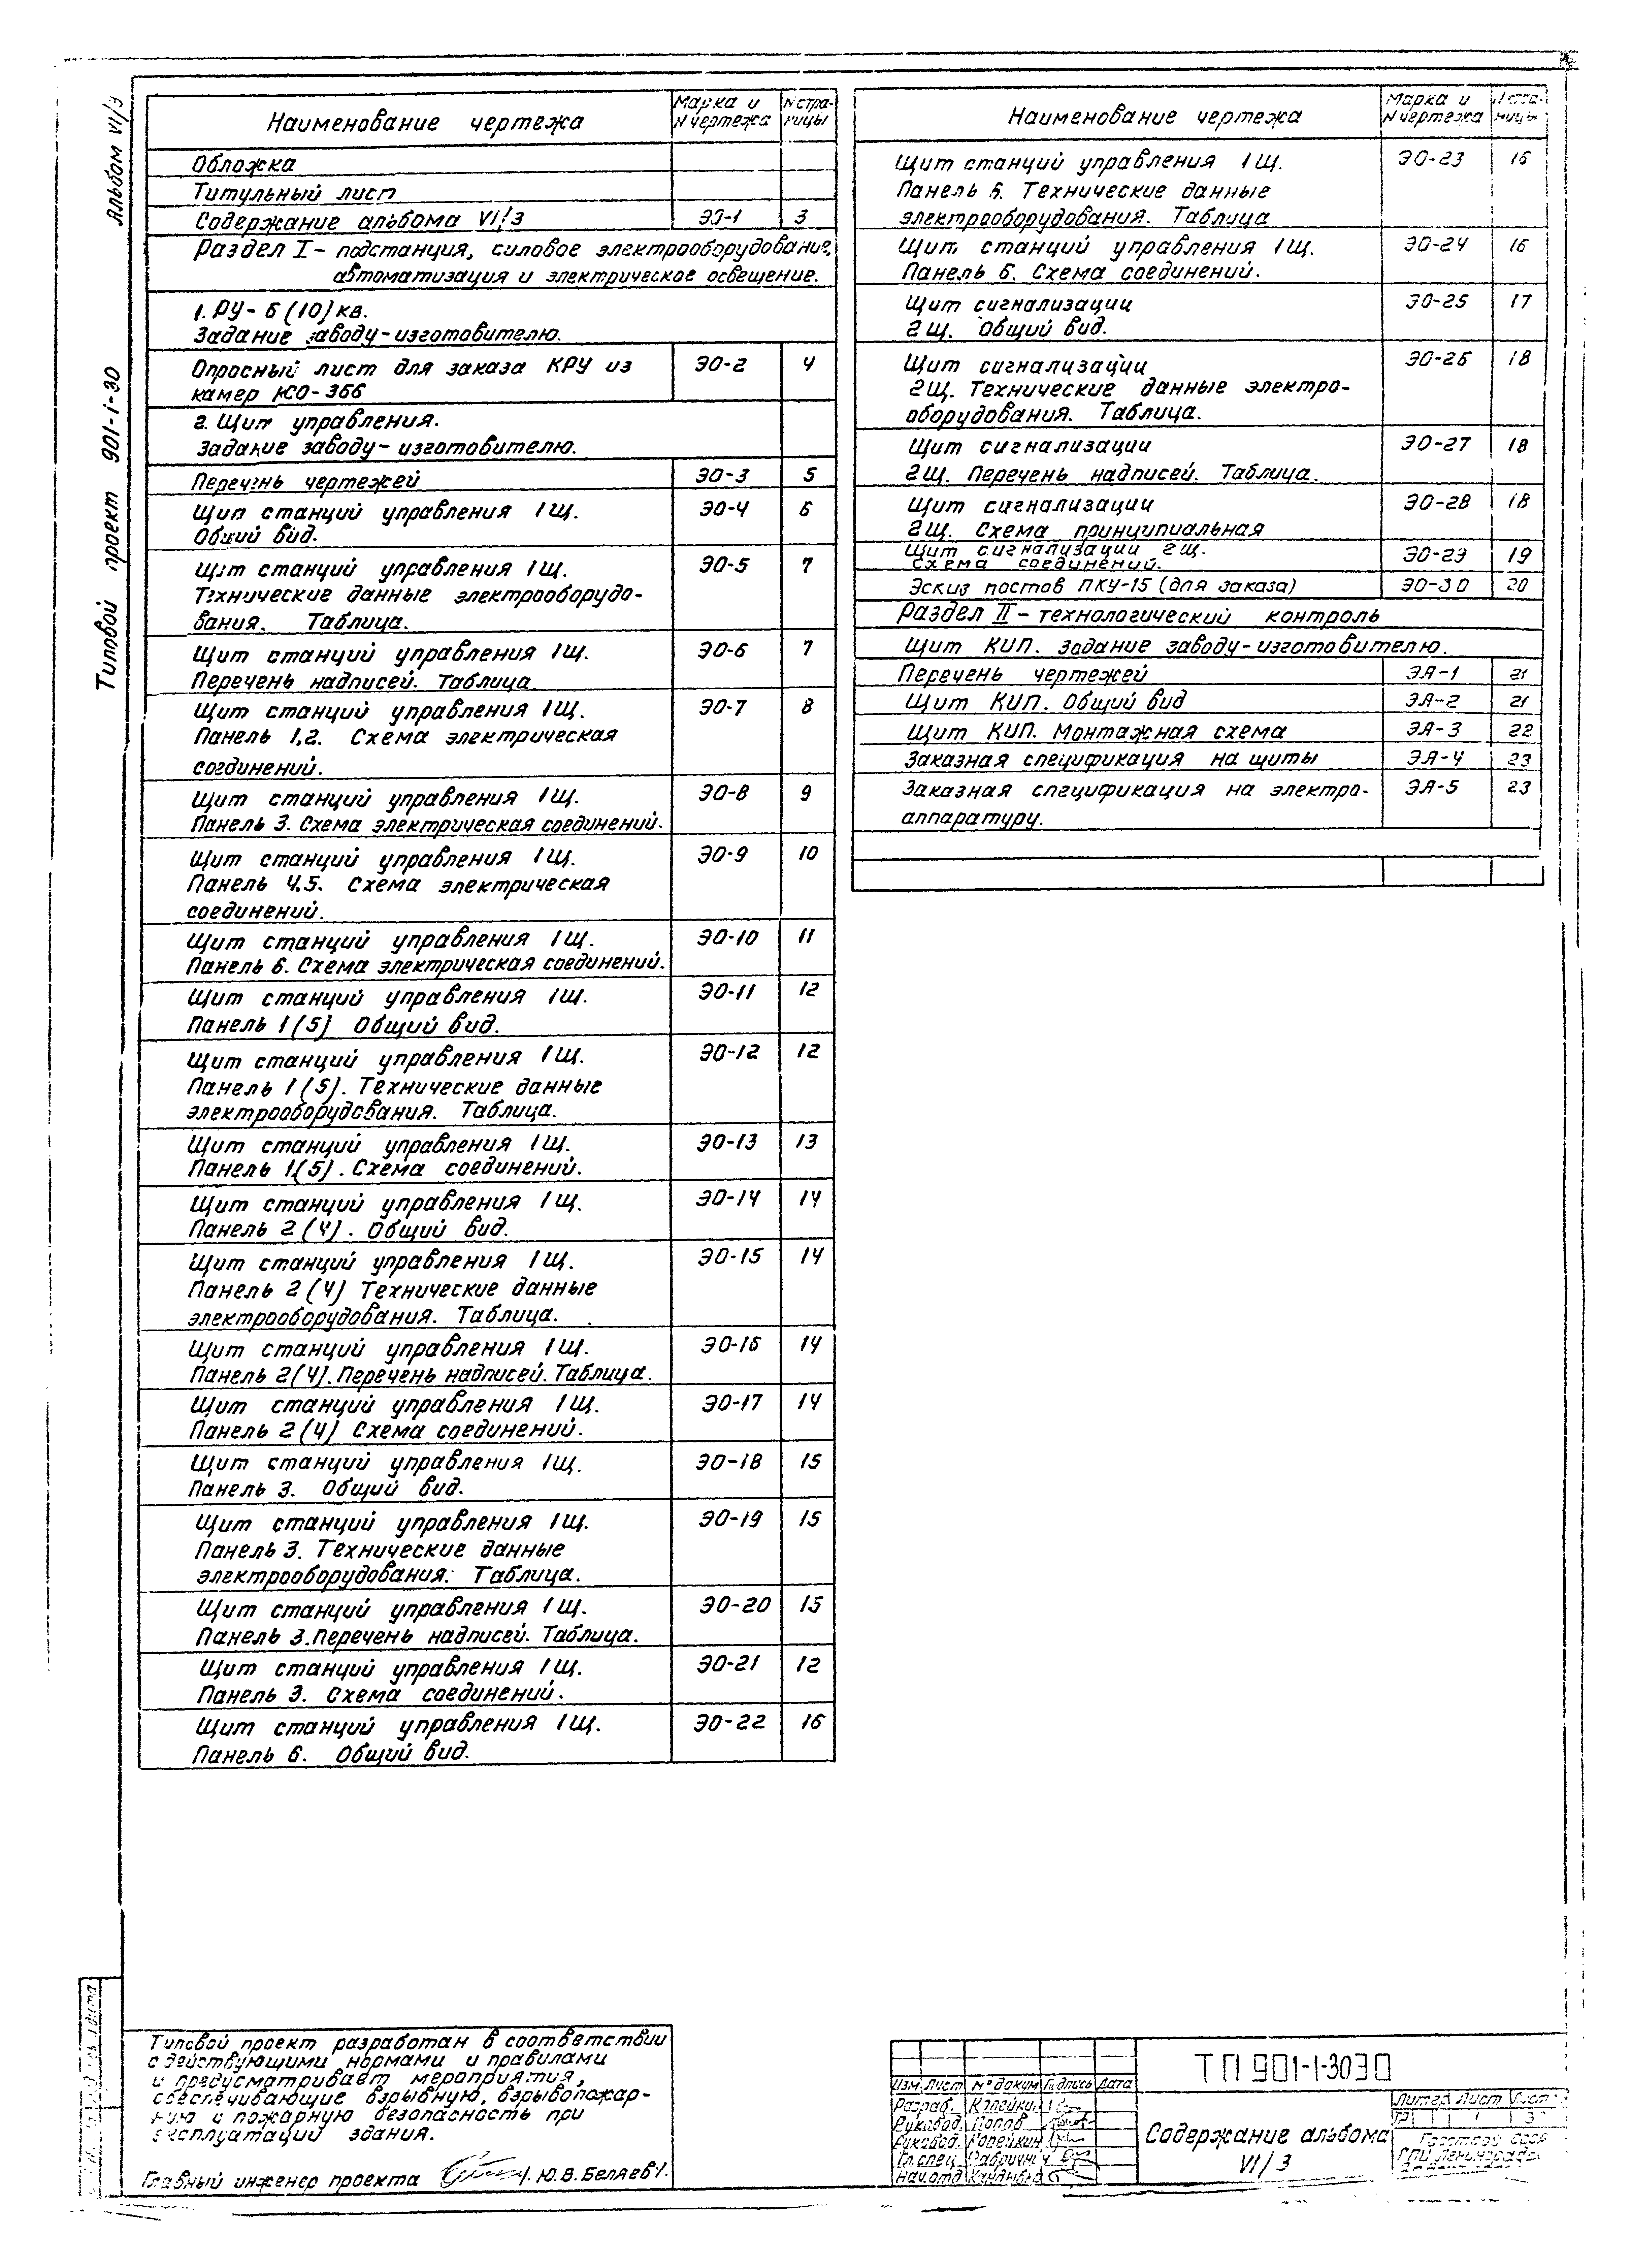 Альбом VI/3
Типовой проект 901-1-30
Наименование чертежа
Марка и N чертежа
N стра-ницы
Обложка
Титульный лист
Содержание альбома VI/3 ЭО-1 3
Раздел I - подстанция, силовое электрооборудование,
автоматизация и электрическое освещение.
1. РУ-6(10) кв.
Задание заводу-изготовителю.
Опросный лист для заказа КРУ из ЭО-2 4
камер КСО-366
2. Щит управления.
Задание заводу-изготовителю.
Перечень чертежей ЭО-3 5
Щит станций управления 1Щ. ЭО-4 6
Общий вид.
Щит станций управления 1Щ. ЭО-5 7
Технические данные электрооборудо-
вания. Таблица.
Щит станций управления 1Щ. ЭО-6 7
Перечень надписей. Таблица
Щит станций управления 1Щ. ЭО-7 8
Панель 1,2. Схема электрическая
соединений.
Щит станций управления 1Щ. ЭО-8 9
Панель 3. Схема электрическая соединений.
Щит станций управления 1Щ. ЭО-9 10
Панель 4,5. Схема электрическая
соединений.
Щит станций управления 1Щ. ЭО-10 11
Панель 6. Схема электрическая соединений.
Щит станций управления 1Щ. ЭО-11 12
Панель 1(5) Общий вид.
Щит станций управления 1Щ. ЭО-12 12
Панель 1(5). Технические данные
электрооборудования. Таблица.
Щит станций управления 1Щ. ЭО-13 13
Панель 1(5). Схема соединений.
Щит станций управления 1Щ. ЭО-14 14
Панель 2(4). Общий вид.
Щит станций управления 1Щ. ЭО-15 14
Панель 2(4) Технические данные
электрооборудования. Таблица.
Щит станций управления 1Щ. ЭО-16 14
Панель 2(4). Перечень надписей. Таблица.
Щит станций управления 1Щ. ЭО-17 14
Панель 2(4) Схема соединений.
Щит станций управления 1Щ. ЭО-18 15
Панель 3. Общий вид.
Щит станций управления 1Щ. ЭО-19 15
Панель 3. Технические данные
электрооборудования. Таблица.
Щит станций управления 1Щ. ЭО-20 15
Панель 3. Перечень надписей. Таблица.
Щит станций управления 1Щ. ЭО-21 12
Панель 3. Схема соединений.
Щит станций управления 1Щ. ЭО-22 16
Панель 6. Общий вид.
Наименование чертежа
Марка и N чертежа
N стра-ницы
Щит станций управления 1Щ. ЭО-23 16
Панель 6. Технические данные
электрооборудования. Таблица
Щит станций управления 1Щ. ЭО-24 16
Панель 6. Схема соединений.
Щит сигнализации ЭО-25 17
2Щ. Общий вид.
Щит сигнализации ЭО-26 18
2Щ. Технические данные электро-
оборудования. Таблица.
Щит сигнализации ЭО-27 18
2Щ. Перечень надписей. Таблица.
Щит сигнализации ЭО-28 18
2Щ. Схема принципиальная
Щит сигнализации 2Щ. ЭО-29 19
Схема соединений.
Эскиз постов ПКУ-15 (для заказа) ЭО-30 20
Раздел II - технологический контроль
Щит КИП. Задание заводу-изготовителю.
Перечень чертежей ЭА-1 21
Щит КИП. Общий вид ЭА-2 21
Щит КИП. Монтажная схема ЭА-3 22
Заказная спецификация на щиты ЭА-4 23
Заказная спецификация на электро- ЭА-5 23
аппаратуру.
Типовой проект разработан в соответствии
с действующими нормами и правилами
и предусматривает мероприятия,
обеспечивающие взрывную, взрывопожар-
ную и пожарную безопасность при
эксплуатации здания.
Главный инженер проекта Ю.В. Беляев
ТП 901-1-3030
Изм. Лист № докум Подпись Дата
Разраб.
Руковод. Попов
Руковод.
Гл.спец.
Нач.отд
Содержание альбома
VI/3
Литер Лист Листов
ТР 1
Госстрой СССР